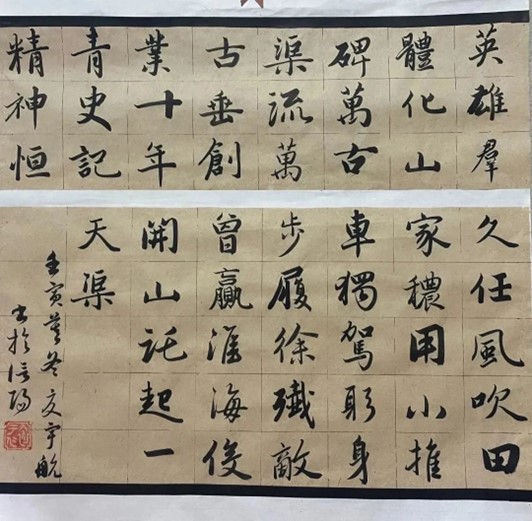 英雄群
體化山
碑萬古
渠流萬
古垂創
業十年
青史記
精神恒
久任風吹田
家穠用小推
車獨駕躬身
步履徐殲敵
曾贏淮海役
開山託起一
天渠
壬寅莫冬宇航
書於信陽